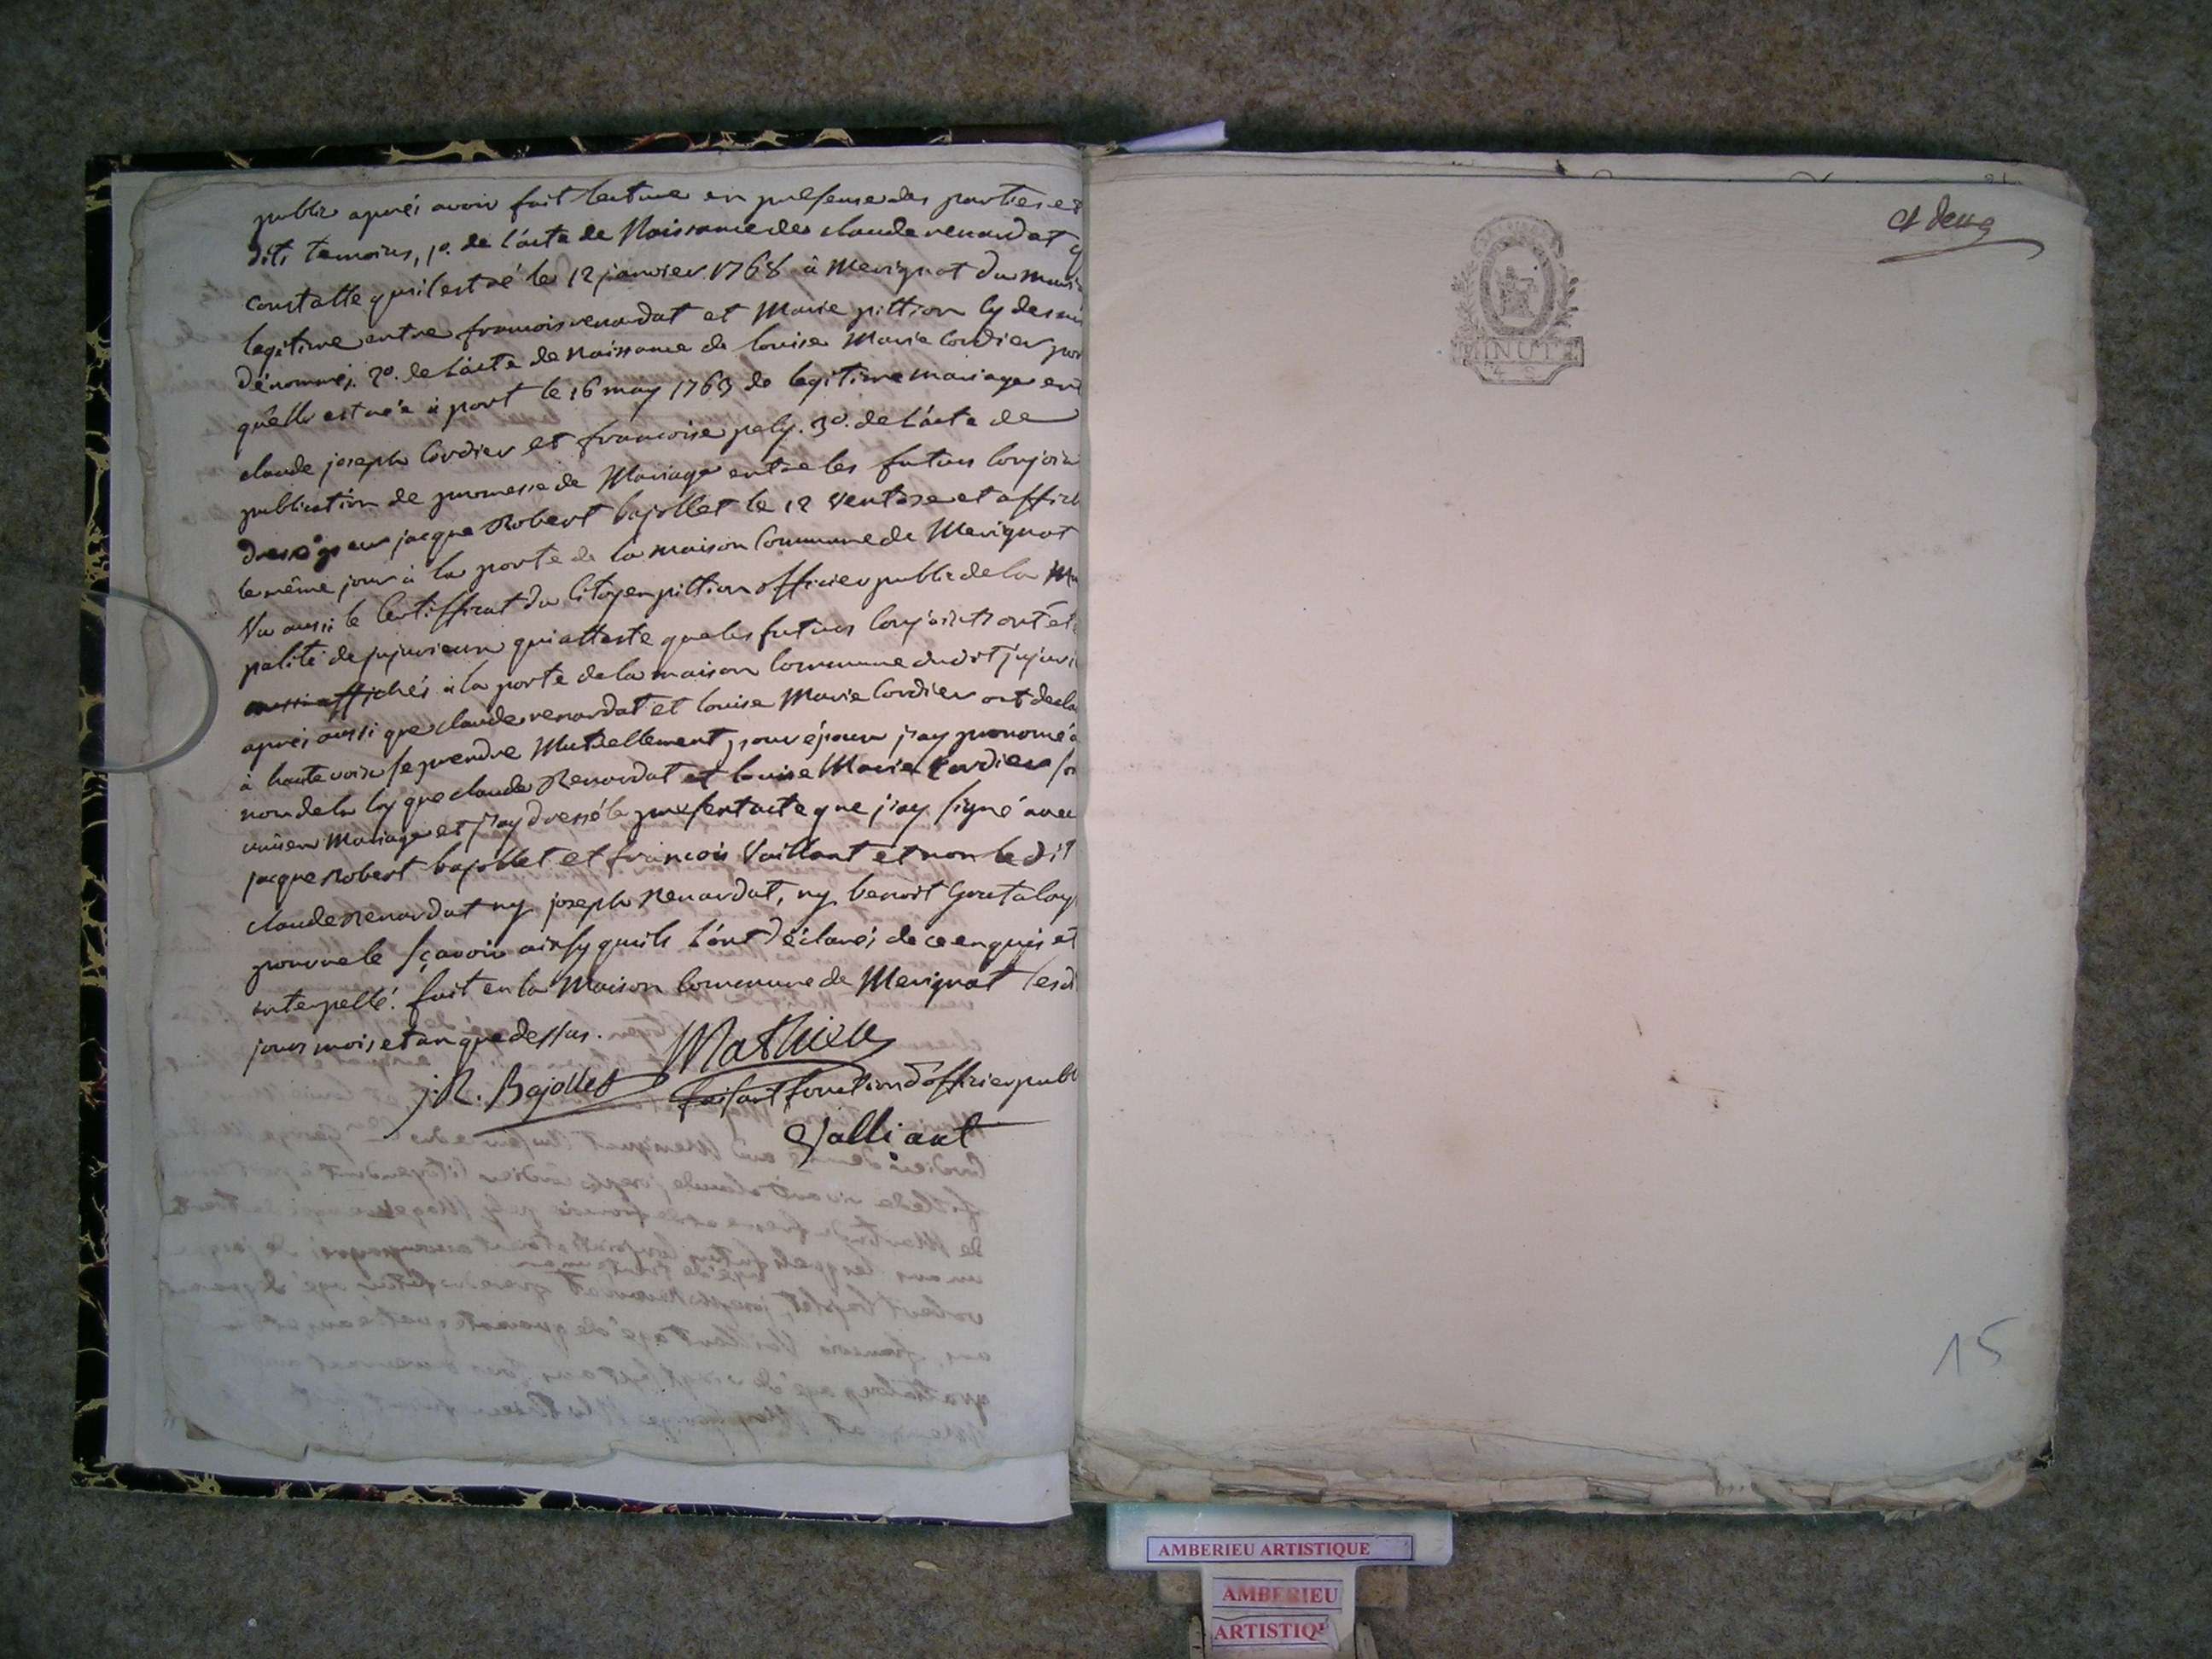 public aprés avoir fait lecture en presence des parties et
dits temoins, 1º. de l'acte de Naissance de claude renardat q
constatte qu'il est né le 12 janvier 1768 à Merignat du mari
legitime entre francois renardat et Marie pittion cy dessus
dénommés. 2º. de l'acte de naissance de louise Marie Cordier por
qu'elle est née à port le 16 may 1763 de legitime mariage en
claude joseph Cordier et francoise pely. 3º. de l'acte de
publication de promesse de Mariage entre les futurs Conjoin
dressé par jacque Robert bajollet le 12 ventose et affich
le même jour à la porte de la maison Commune de Merignat
Vu aussi le Certifficat du Citoyen pittion officier public de la Mu
palité de jujurieux qui atteste que les futurs Conjoints ont été
aussi affichés à la porte de la maison Commune dudit jujuri
aprés aussi que claude renardat et louise Marie Cordier ont decla
à haute voix se prendre Mutuellement pour époux j'ay prononcé a
nom de la loy que claude Renardat et louise Marie Cordier so
unis en Mariage et j'ay dressé le present acte que j'ay signé avec
jacque Robert bajollet et francois Vaillant et non le dit
claude Renardat ny joseph Renardat, ny benoit
pour ne le sçavoir ainsy quils l'ont déclarés de ce enquis et
interpellé. fait en la Maison Commune de Merignat les d
jours mois et an que dessus.
Mathieu
j. R. Bajollet faisant fonction d'officier publ
Valliant
et deux
MINUTE
15
AMBERIEU ARTISTIQUE
AMBERIEU
ARTISTIQ